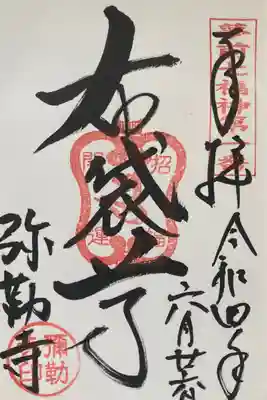 奉拝
令和四年
六月
布袋尊
招福
開運
弥勒寺
彌勒
寺印